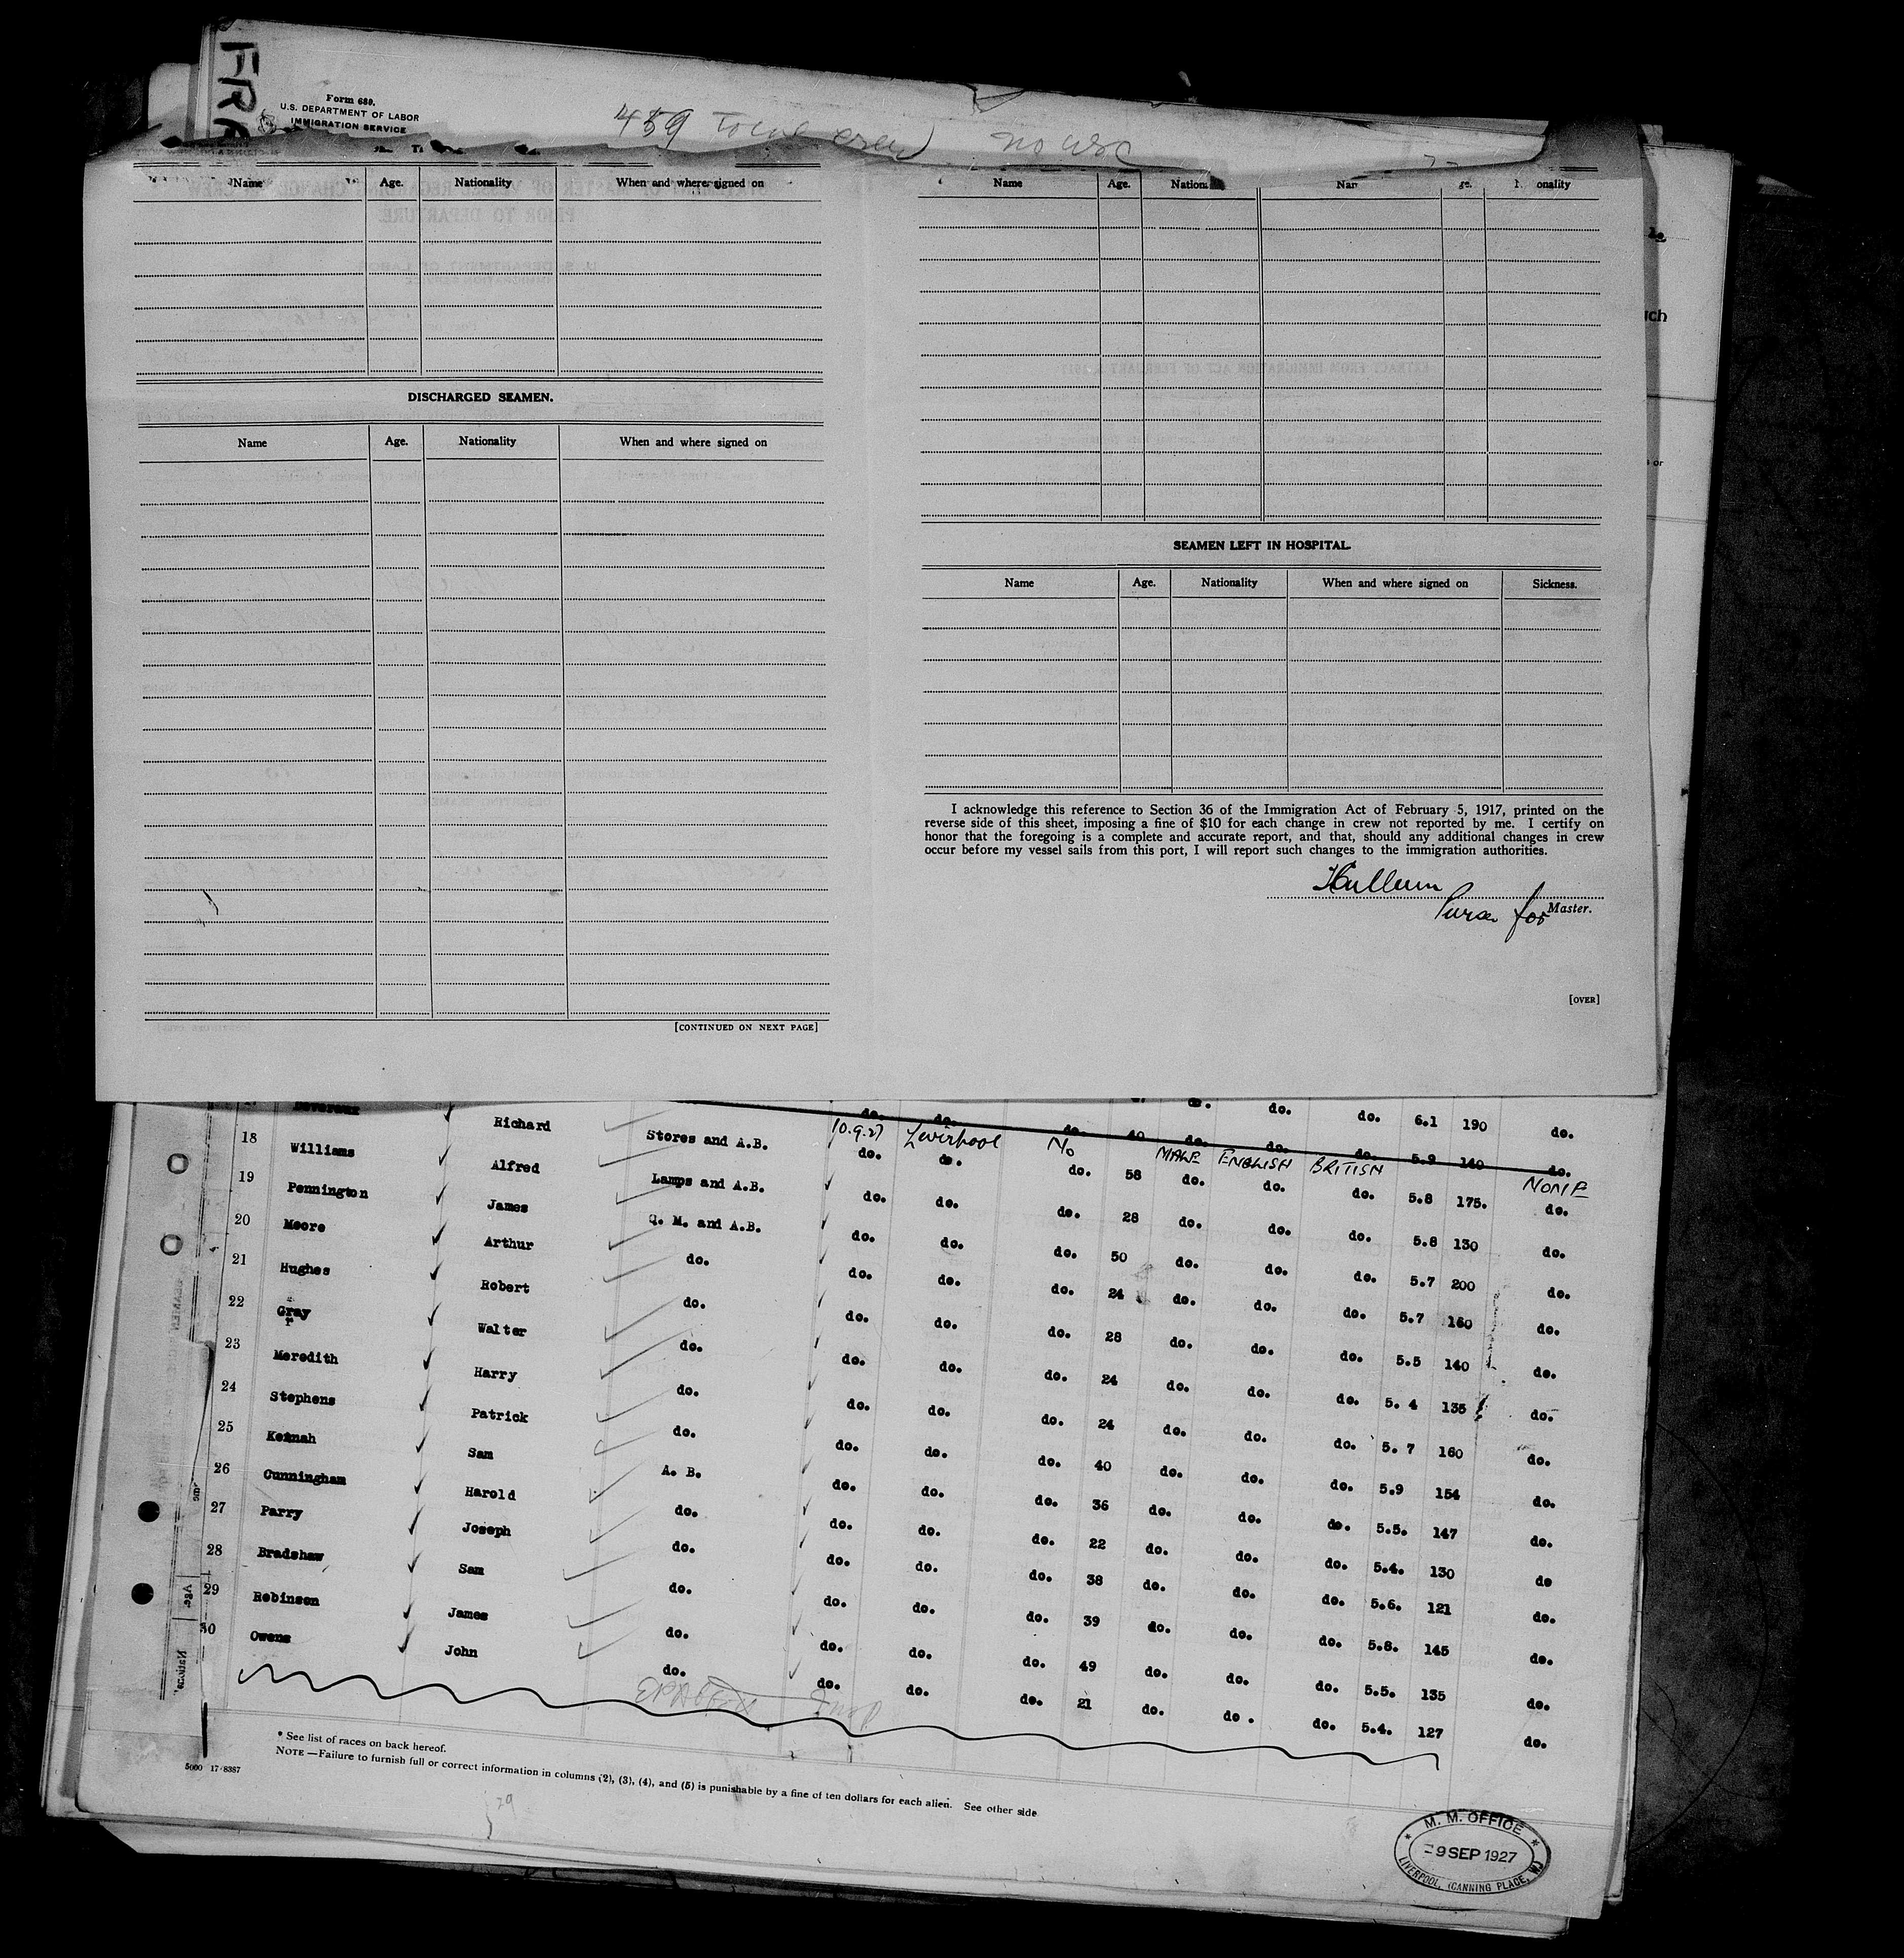 FRA
Form 689.
U.S. DEPARTMENT OF LABOR
IMMIGRATION SERVICE
459 Total crew no USC
Name Age. Nationality When and where signed on
DISCHARGED SEAMEN.
Name Age. Nationality When and where signed on
[CONTINUED ON NEXT PAGE]
Name Age.
SEAMEN LEFT IN HOSPITAL.
Name Age. Nationality When and where signed on Sickness.
I acknowledge this reference to Section 36 of the Immigration Act of February 5, 1917, printed on the
reverse side of this sheet, imposing a fine of $10 for each change in crew not reported by me. I certify on
honor that the foregoing is a complete and accurate report, and that, should any additional changes in crew
occur before my vessel sails from this port, I will report such changes to the immigration authorities.
Purser for Master.
[OVER]
do. do. do. 6.1 190 do.
do. do. do. 40 do. do. do. 5.9 140 do.
10.9.27 Liverpool No MALE ENGLISH BRITISH NONE
Devereux Richard Stores and A.B. do. do. do. 58 do. do. do. 5.8 175. do.
18 Williams Alfred Lamps and A.B. do. do. do. 28 do. do. do. 5.8 130 do.
19 Pennington James Q. M. and A.B. do. do. do. 50 do. do. do. 5.7 200 do.
20 Moore Arthur do. do. do. do. 24 do. do. do. 5.7 160 do.
21 Hughes Robert do. do. do. do. 28 do. do. do. 5.5 140 do.
22 Gray Walter do. do. do. do. 24 do. do. do. 5. 4 135 do.
23 Meredith Harry do. do. do. do. 24 do. do. do. 5. 7 160 do.
24 Stephens Patrick do. do. do. do. 40 do. do. do. 5.9 154 do.
25 Keinah Sam A. B. do. do. do. 36 do. do. do. 5.5. 147 do.
26 Cunningham Harold do. do. do. do. 22 do. do. do. 5.4. 130 do
27 Parry Joseph do. do. do. do. 38 do. do. do. 5.6. 121 do.
28 Bradshaw Sam do. do. do. do. 39 do. do. do. 5.8. 145 do.
29 Robinson James do. do. do. do. 49 do. do. do. 5.5. 135 do.
30 Owens John do. do. do. do. 21 do. do . do. 5.4. 127 do.
* See list of races on back hereof.
NOTE —Failure to furnish full or correct information in columns (2), (3), (4), and (5) is punishable by a fine of ten dollars for each alien. See other side
5000 17-8387
M. M. OFFICE
-9 SEP 1927
LIVERPOOL, (CANNING PLACE, W)